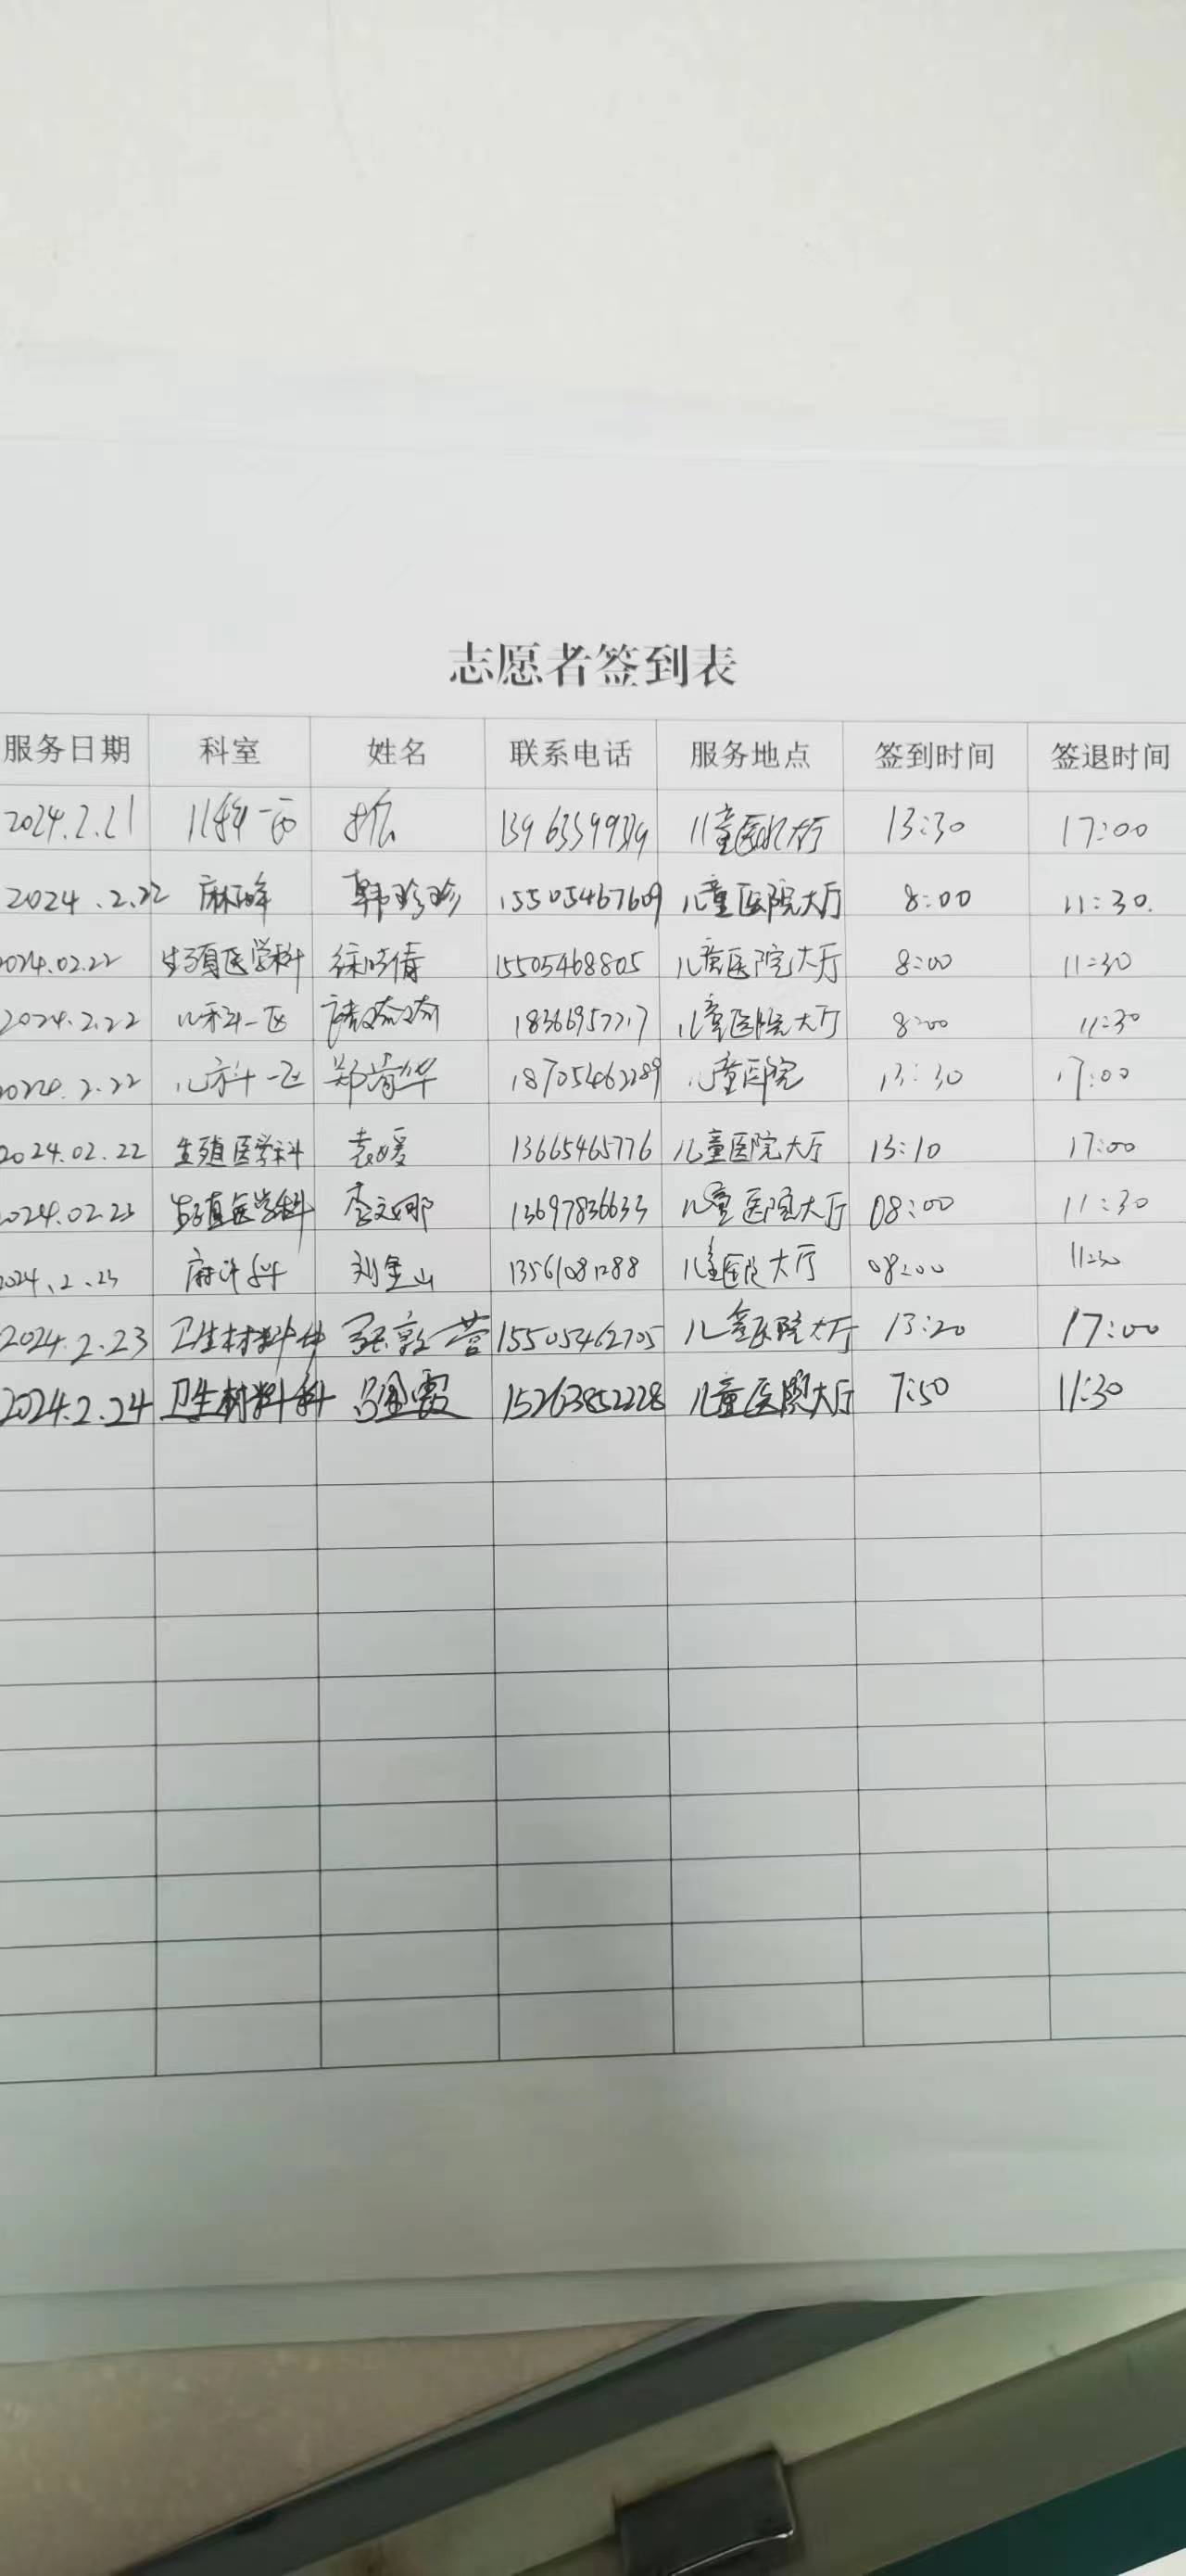 志愿者签到表
服务日期 科室 姓名 联系电话 服务地点 签到时间 签退时间
2024.2.21 儿科一区 儿童医院大厅 13:30 17:00
2024.2.22 韩珍珍 15505467609 儿童医院大厅 8:00 11:30.
2024.02.22 生殖医学科 徐晓倩 15505468805 儿童医院大厅 8:00 11:30
2024.2.22 儿科一区 儿童医院大厅 8:00 11:30
2024.2.22 儿科一区 儿童医院 13:30 17:00
2024.02.22 生殖医学科 袁媛 13665465776 儿童医院大厅 13:10 17:00
2024.02.23 生殖医学科 李文娜 13697836633 儿童医院大厅 08:00 11:30
2024.2.23 麻醉科 刘金山 儿童医院大厅 08:00 11:30
2024.2.23 卫生材料科 15505462705 儿童医院大厅 13:20 17:00
2024.2.24 卫生材料科 15263852228 儿童医院大厅 7:50 11:30